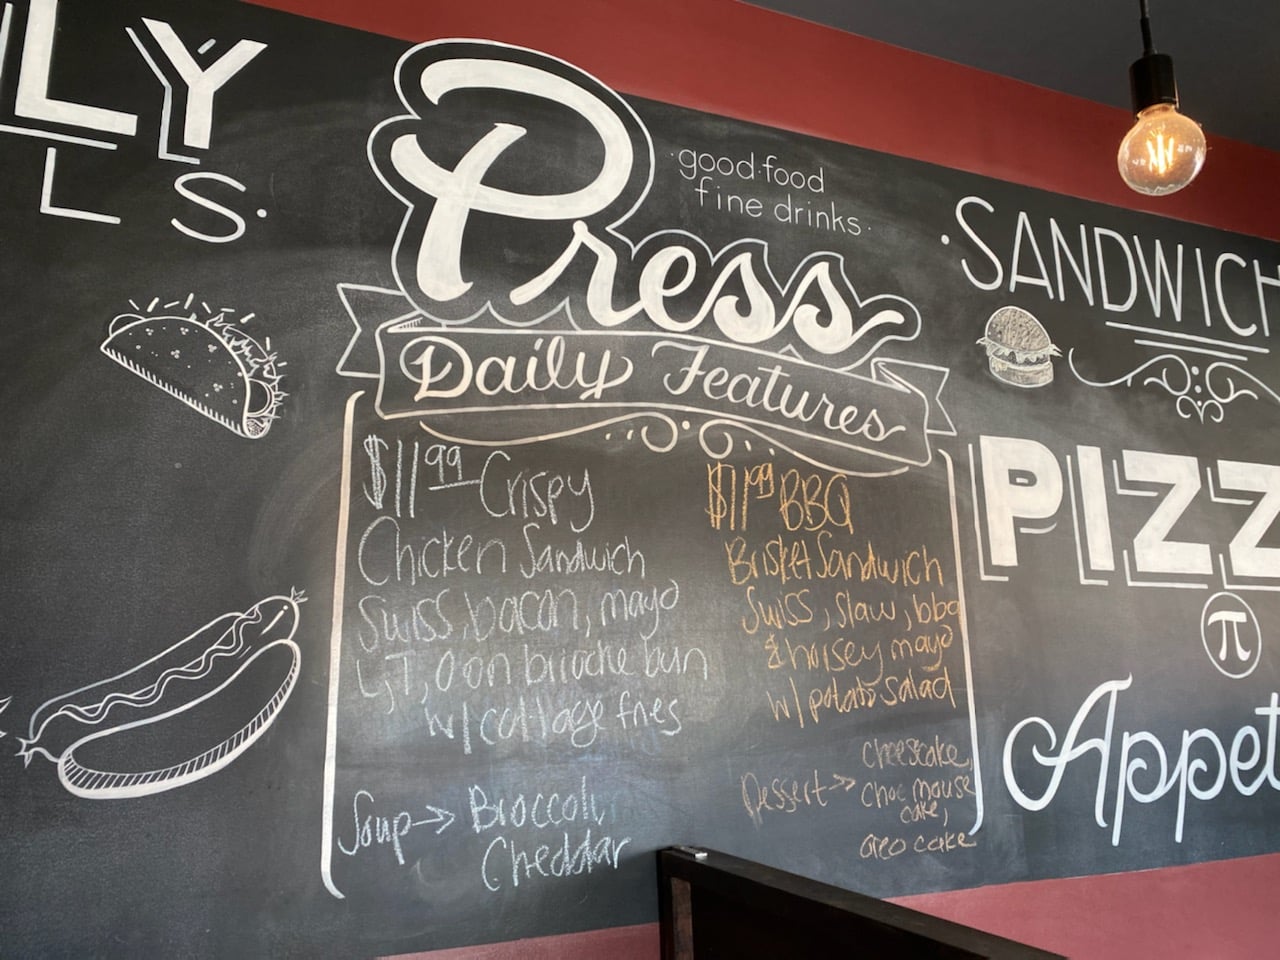 LY
LS.
Press
·good food
fine drinks·
Daily Features
$11.99 Crispy
Chicken Sandwich
Swiss, bacon, mayo
L, T, O on brioche bun
w/ cottage fries
Soup → Broccoli
Cheddar
$11.99 BBQ
Brisket Sandwich
Swiss, slaw, bbq
& horsey mayo
w/ potato salad
Dessert → cheescake,
choc mouse
cake,
oreo cake
·SANDWICH
PIZZ
π
Appet